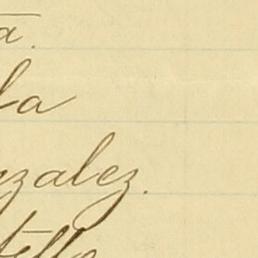 a.
la
nzalez.
tello